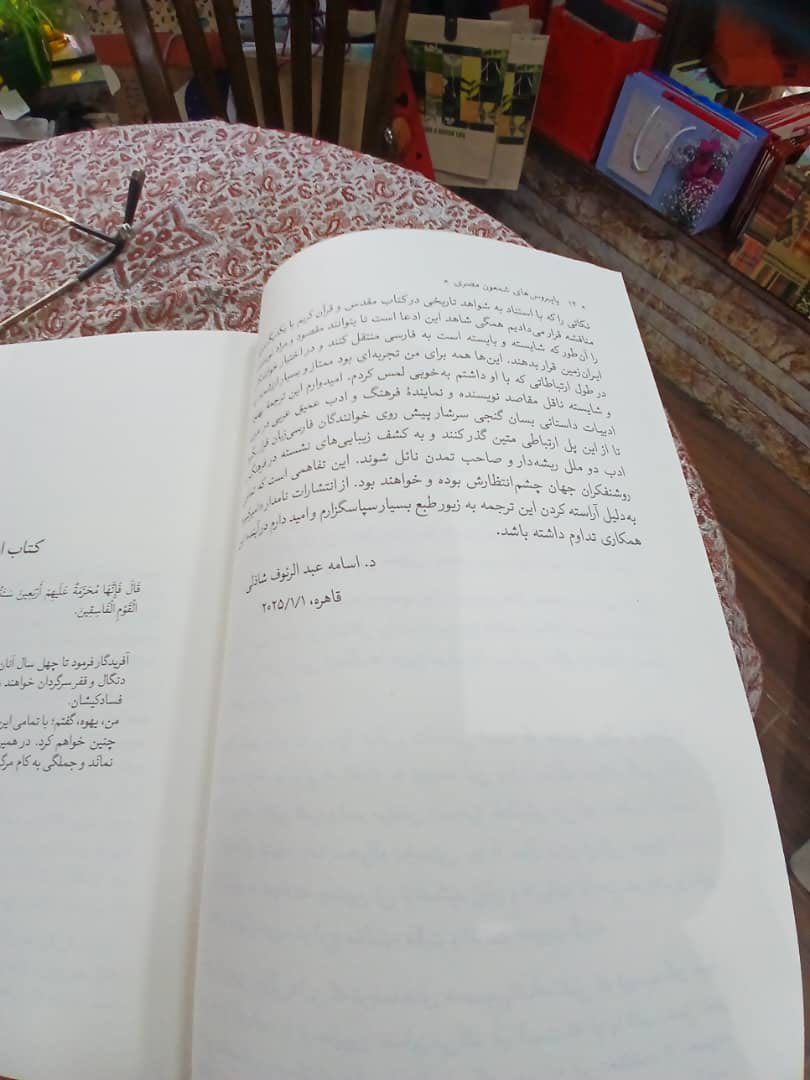 ۱۴ پاپیروس های شمعون مصری
نکاتی را که با استناد به شواهد تاریخی در کتاب مقدس و قرآن کریم با یکدیگر
مناقشه قرار می‌دادیم همگی شاهد این ادعا است تا بتوانند مقصود و مراد
را آن‌طور که شایسته و بایسته است به فارسی منتقل کنند و در اختیار
ایران‌زمین قرار بدهند. این‌ها همه برای من تجربه‌ای بود ممتاز و بسیار
در طول ارتباطاتی که با او داشتم به‌خوبی لمس کردم. امیدوارم این ترجمه
و شایسته ناقل مقاصد نویسنده و نمایندهٔ فرهنگ و ادب عمیق عربی در
ادبیات داستانی بسان گنجی سرشار پیش روی خوانندگان فارسی‌زبان
تا از این پل ارتباطی متین گذر کنند و به کشف زیبایی‌های نشسته در
ادب دو ملل ریشه‌دار و صاحب تمدن نائل شوند. این تفاهمی است که
روشنفکران جهان چشم‌انتظارش بوده و خواهند بود. از انتشارات نامدار
به‌دلیل آراسته کردن این ترجمه به زیور طبع بسیار سپاسگزارم و امید دارم در آینده
همکاری تداوم داشته باشد.
د. اسامه عبد الرئوف شاذلی
قاهره، ۲۰۲۵/۱/۱
کتاب
قَالَ فَإِنَّهَا مُحَرَّمَةٌ عَلَيهِم أَرْبَعِينَ
الْقَوْمِ الْفَاسِقِينَ.
آفریدگار فرمود تا چهل سال آنان
دنگال و قفر سرگردان خواهند
فسادکیشان.
من، یهوه، گفتم؛ با تمامی این
چنین خواهم کرد. در همین
نماند و جملگی به کام مرگ